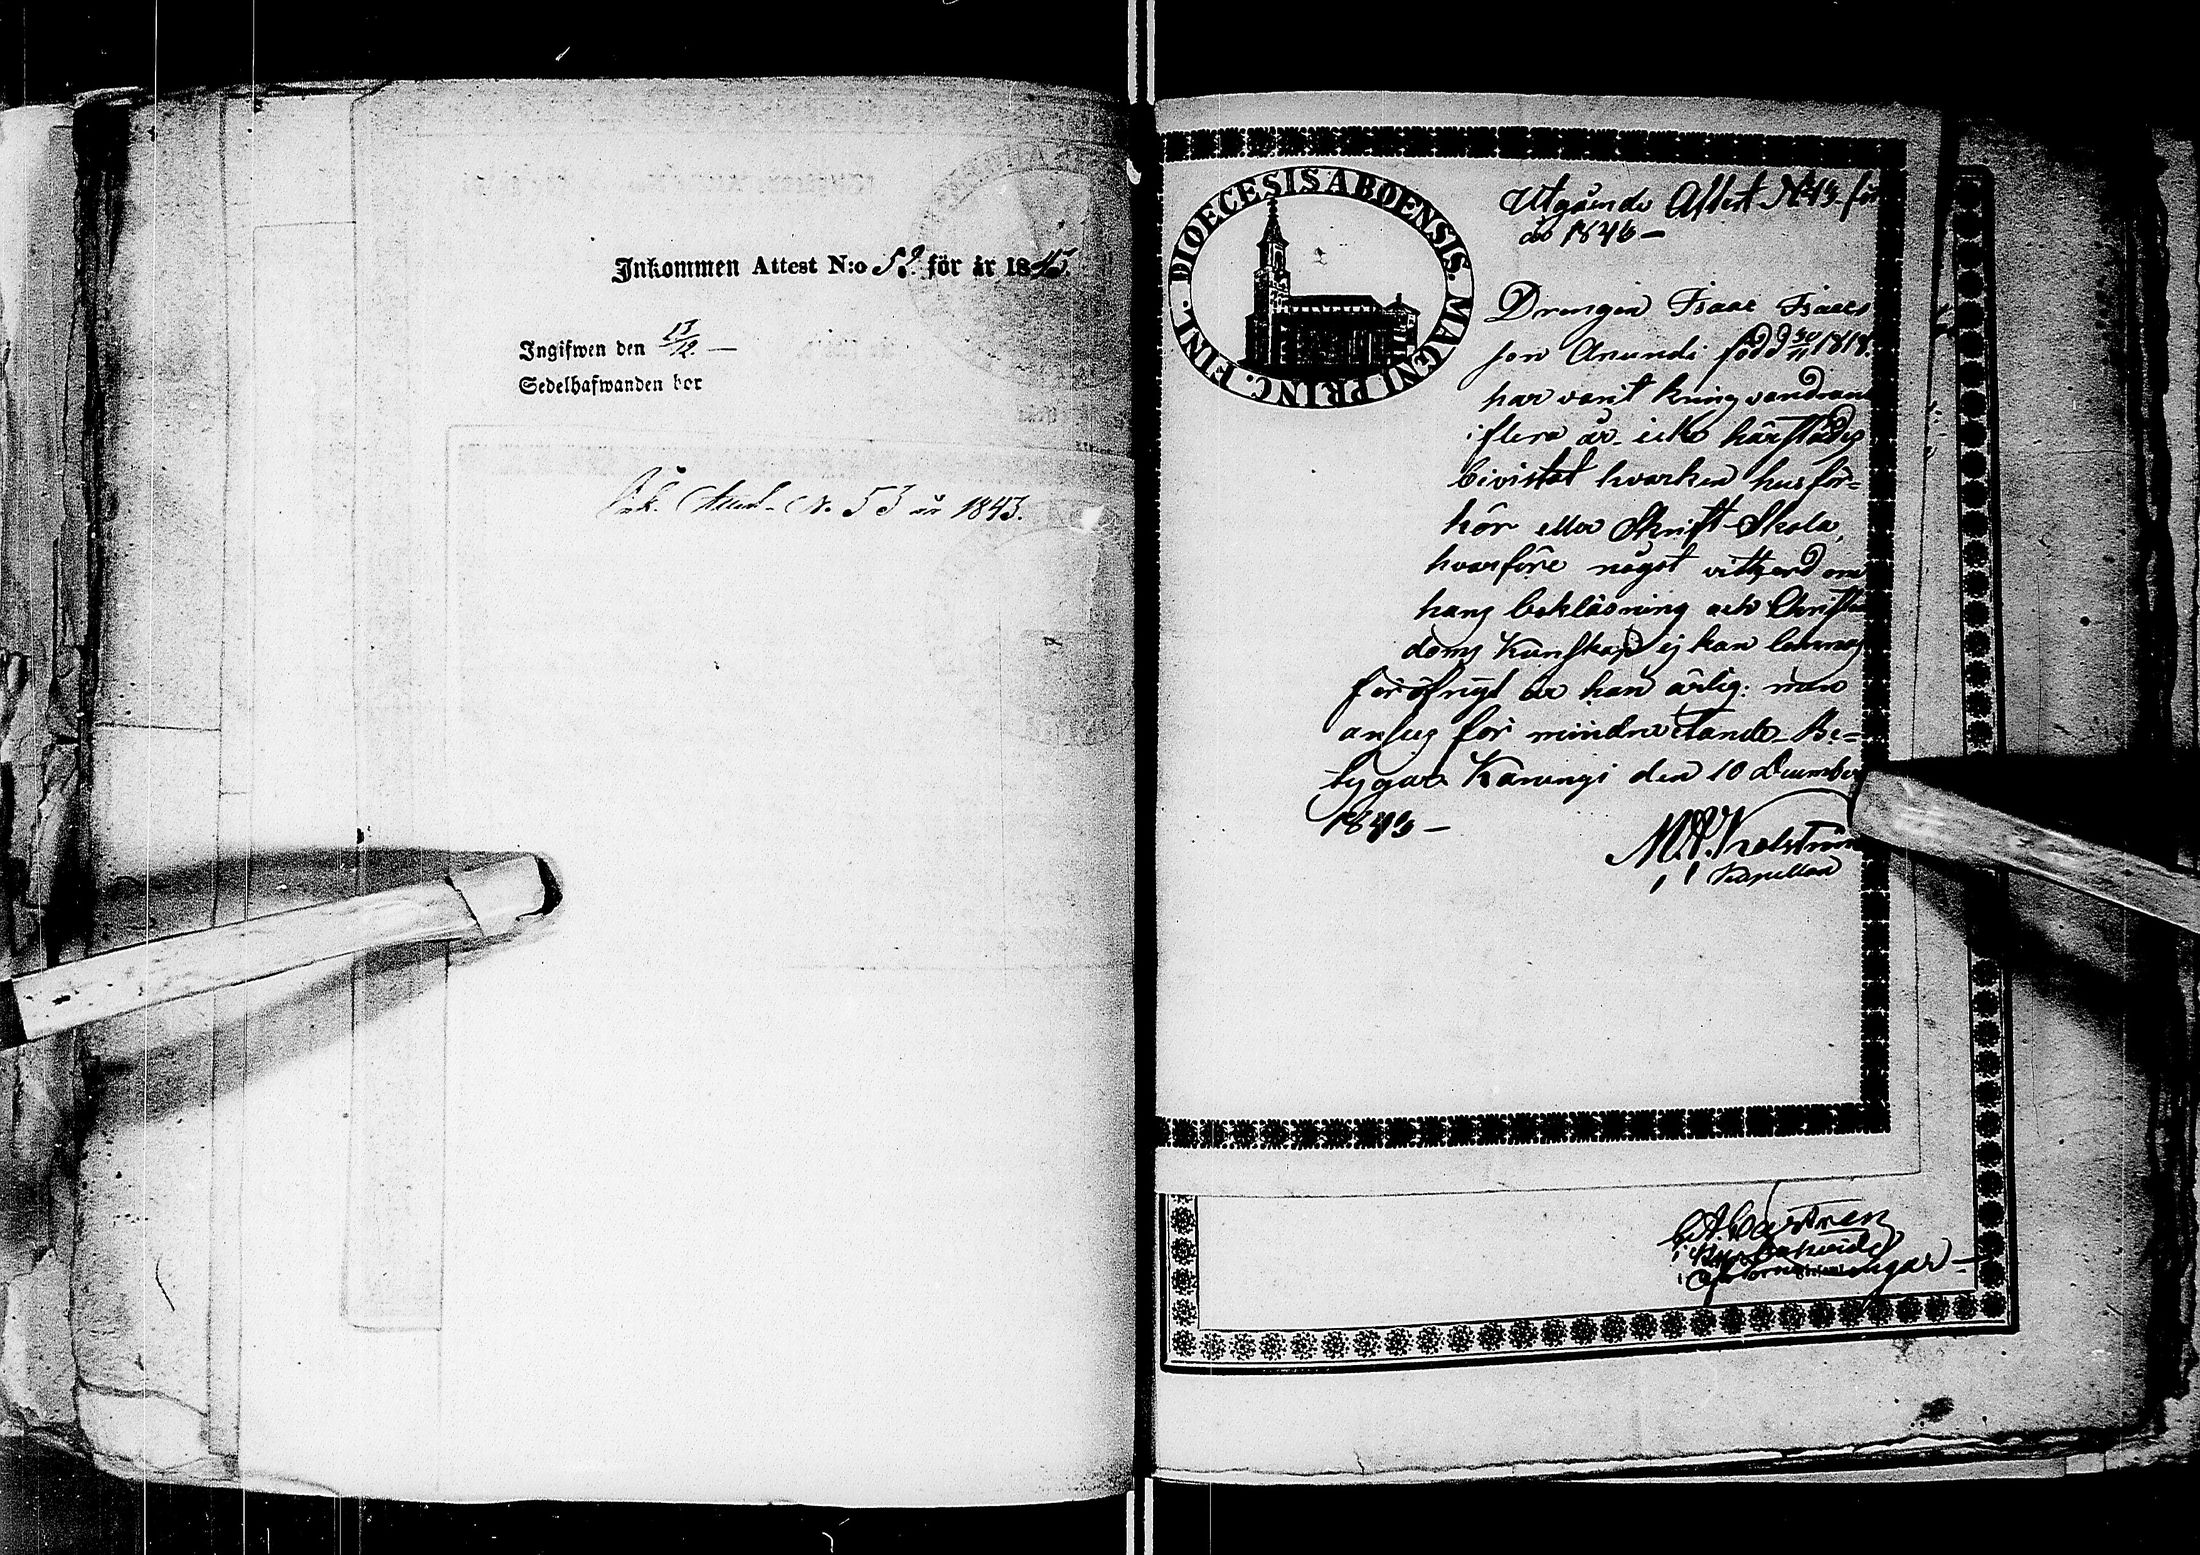 Inkommen Attest N:o 52. för år 1843.
Ingifwen den 17/12. —
Sedelhafwanden bor
Ink. Attest. No 53 år 1843.
DIOECESIS ABOENSIS. MAGNI PRINC. FINL.
Utgående Attest No 43 för
år 1843 —
Drengen Isaac Isaacs
son Anundi född 30/11 1818.
har varit kringvandrande
i flera år icke härstädes
bivistat hvarken husför=
hör eller Skrift-Skola,
hvarföre något vittzord om
hans bekläsning och Christen
doms Kunskap ej kan lemnas
för öfrigt är han ärlig: man
anses för mindre vetande. Be=
tygar Karungi den 10 December
1843 —
Kapellan
C A Castren